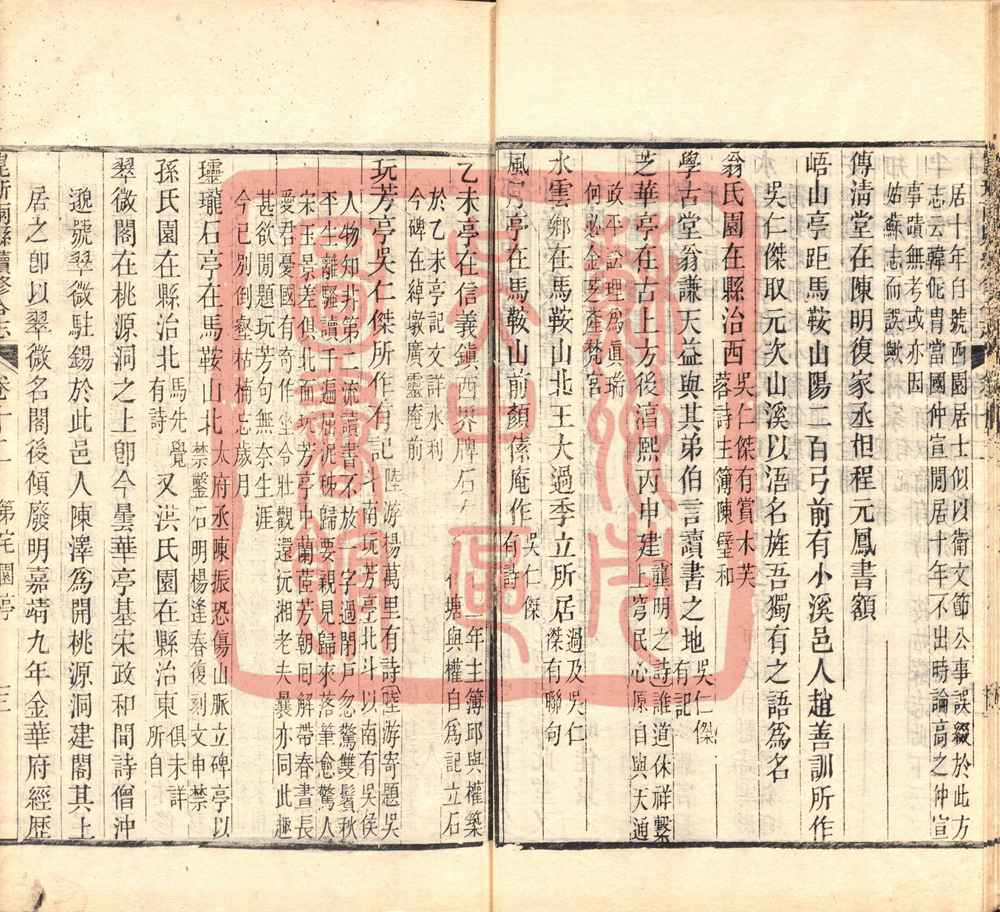 居十年自號西園居士似以衛文節公事誤綴於此方
志云韓侂胄當國仲宣閒居十年不出時論高之仲宣
事蹟無考或亦因
姑蘇志而誤歟
傳清堂在陳明復家丞相程元鳳書額
峿山亭距馬鞍山陽二百弓前有小溪邑人趙善訓所作
吳仁傑取元次山溪以浯名旌吾獨有之語爲名
翁氏園在縣治西
吳仁傑有賞木芙
蓉詩主簿陳璧和
學古堂翁謙天益與其弟伯言讀書之地
吳仁傑
有記
芝華亭在古上方後淳熙丙申建
董明之詩誰道休祥繫
上穹民心原自與天通
政平訟理爲眞瑞
何必金芝產梵宮
水雲鄉在馬鞍山北王大過季立所居
過及吳仁
傑有聯句
風月亭在馬鞍山前顏傃庵作
吳仁傑
有詩
乙未亭在信義鎭
西界牌石
年主簿邱與權築
塘與權自爲記立石
於乙未亭記文詳水利
今碑在綽墩廣靈庵前
玩芳亭吳仁傑所作有記
陸游楊萬里有詩陸游寄題吳
斗南玩芳亭北斗以南有吳侯
人物知非第一流讀書不放一字過閉戶忽驚雙鬢秋
平生離騷讀千遍屈泥秭歸要親見歸來落筆愈驚人
宋玉景差俱北面玩芳亭中蘭茝芳朝同解帶春晝長
愛君憂國有奇作坐令壯觀還沅湘老夫暴亦同此趣
甚欲閒題玩芳句無奈生涯
今已別倒壑枯楠忘歲月
瓏瓏石亭在馬鞍山北
太府丞陳振恐傷山脈立碑亭以
禁鑿石明楊逢春復刻文申禁
孫氏園在縣治北
馬先覺
有詩
又洪氏園在縣治東
俱未詳
所自
翠微閣在桃源洞之上卽今曇華亭基宋政和間詩僧沖
邈號翠微駐錫於此邑人陳澤爲開桃源洞建閣其上
居之卽以翠微名閣後傾廢明嘉靖九年金華府經歷
崑新兩縣續修合志
卷十二
第宅園亭
三